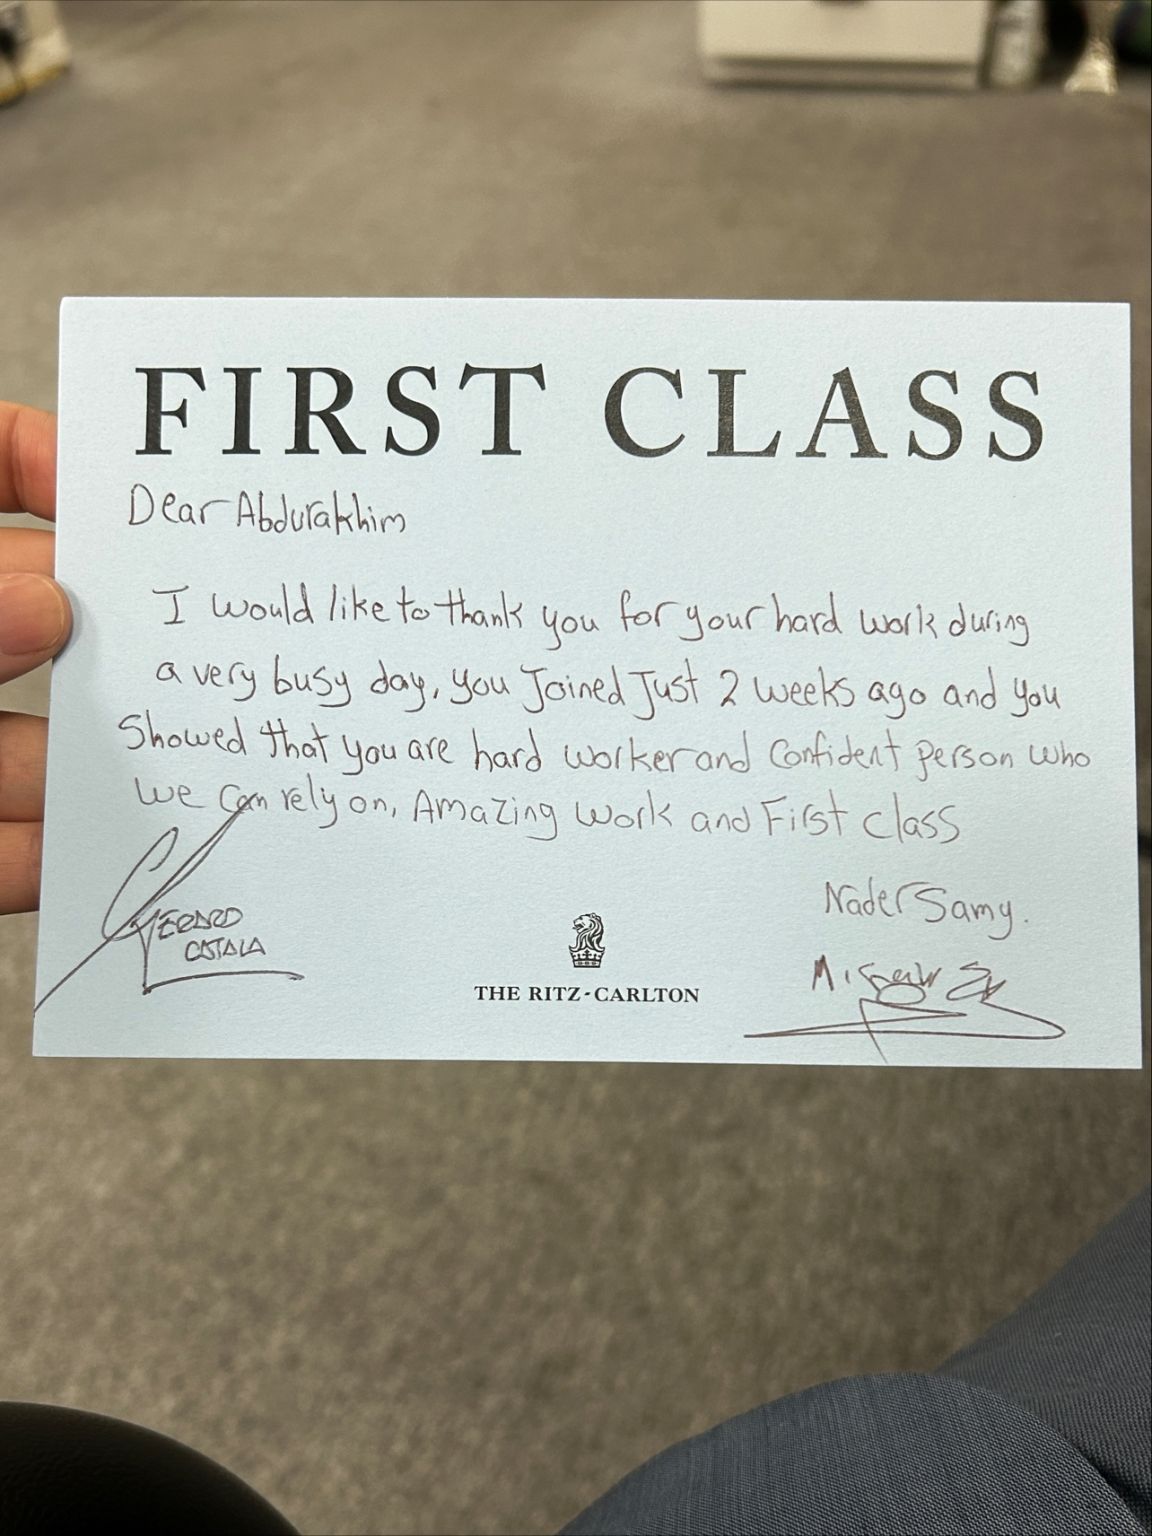 FIRST CLASS
Dear Abdurakhim
I would like to thank you for your hard work during
a very busy day, you Joined Just 2 weeks ago and you
Showed that you are hard worker and Confident person who
we can rely on, Amazing work and First class
Nader Samy.
GERARD
CATALA
THE RITZ-CARLTON